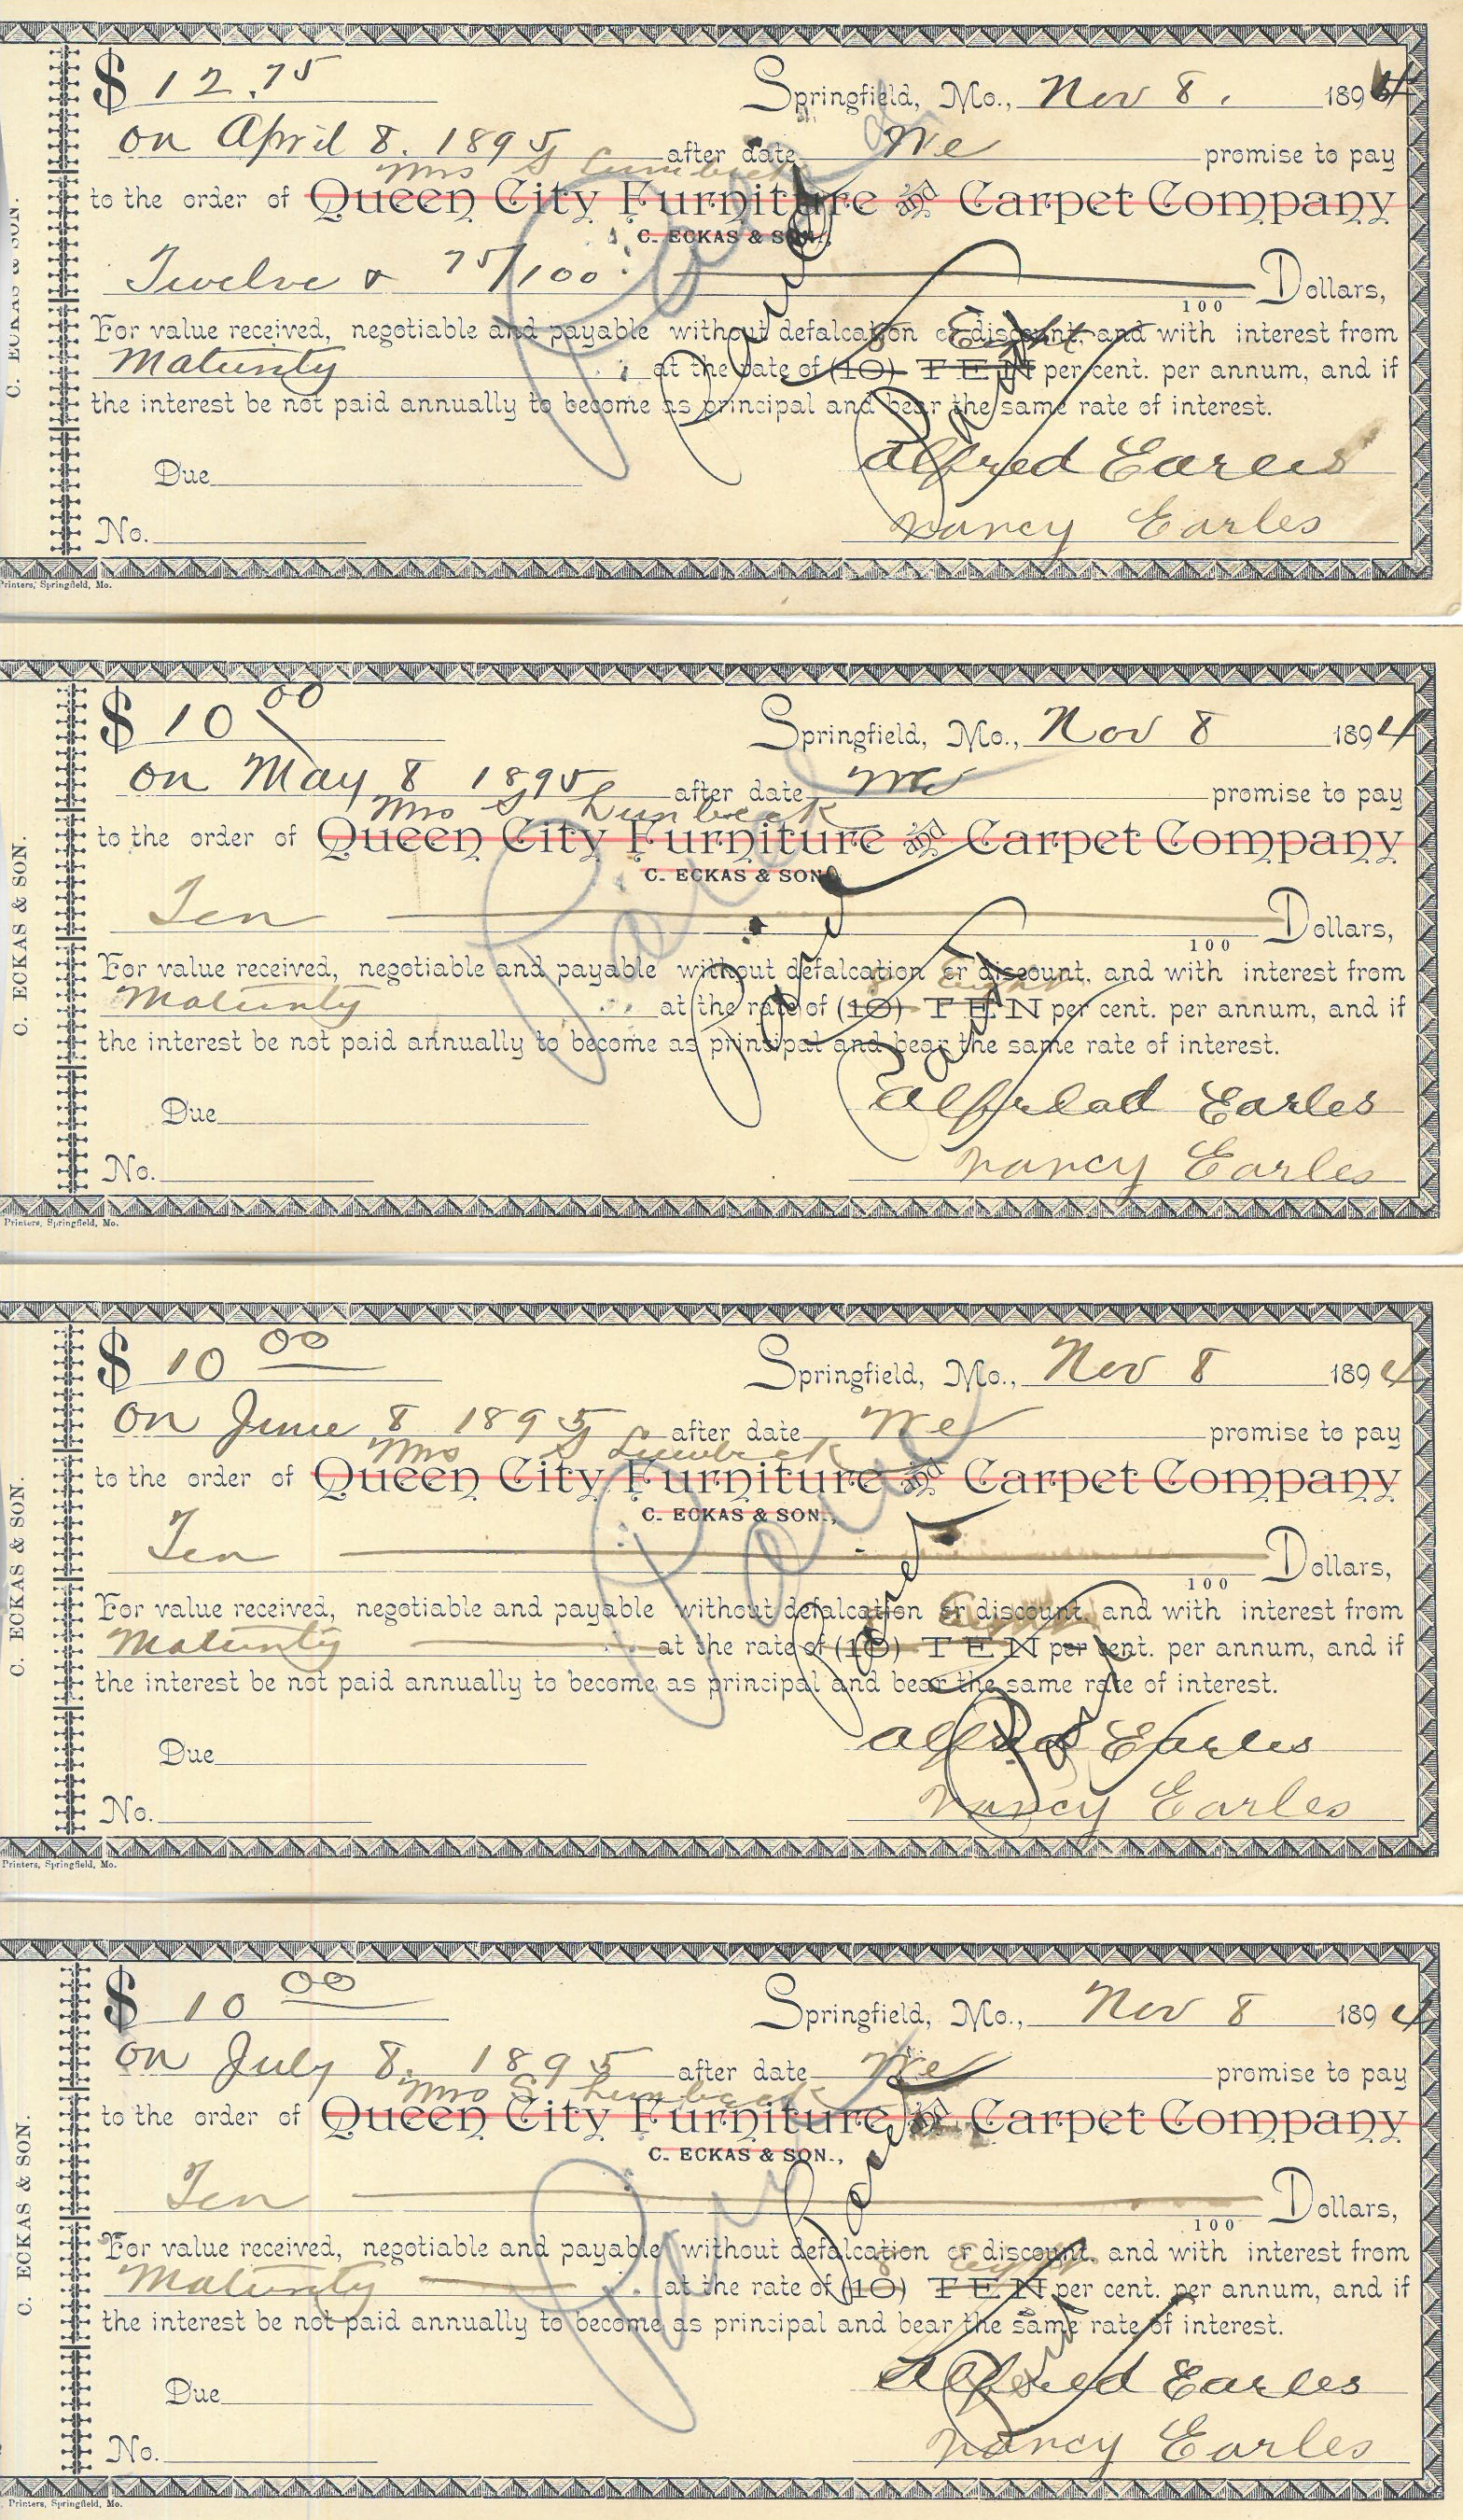 $ 12.75 Springfield, Mo., Nov 8. 1894
on April 8. 1895 after date We promise to pay
Mrs S Lumbeck
to the order of Queen City Furniture and Carpet Company
C. ECKAS & SON.,
Twelve & 75/100 Dollars,
100
For value received, negotiable and payable without defalcation or discount, and with interest from
8 Eight
Maturity at the rate of (10) TEN per cent. per annum, and if
the interest be not paid annually to become as principal and bear the same rate of interest.
Paid
Paid
Paid
Due Alfred Earles
No. Nancy Earles
C. ECKAS & SON.
Printers, Springfield, Mo.
$ 10 00 Springfield, Mo., Nov 8 1894
on May 8 1895 after date We promise to pay
Mrs S Lumbeck
to the order of Queen City Furniture and Carpet Company
C. ECKAS & SON
Ten Dollars,
100
For value received, negotiable and payable without defalcation or discount, and with interest from
8 Eight
Maturity at the rate of (10) TEN per cent. per annum, and if
the interest be not paid annually to become as principal and bear the same rate of interest.
Paid
Paid
Paid
Due Alfread Earles
No. Nancy Earles
C. ECKAS & SON.
Printers, Springfield, Mo.
$ 10 00 Springfield, Mo., Nov 8 1894
on June 8 1895 after date We promise to pay
Mrs S Lumbeck
to the order of Queen City Furniture and Carpet Company
C. ECKAS & SON.,
Ten Dollars,
100
For value received, negotiable and payable without defalcation or discount, and with interest from
Eight
Maturity at the rate of (10) TEN per cent. per annum, and if
the interest be not paid annually to become as principal and bear the same rate of interest.
Paid
Paid
Paid
Due Alfred Earles
No. Nancy Earles
C. ECKAS & SON.
Printers, Springfield, Mo.
$ 10 00 Springfield, Mo., Nov 8 1894
on July 8. 1895 after date We promise to pay
Mrs S Lumbeck
to the order of Queen City Furniture and Carpet Company
C. ECKAS & SON.,
Ten Dollars,
100
For value received, negotiable and payable without defalcation or discount, and with interest from
8 Eight
Maturity at the rate of (10) TEN per cent. per annum, and if
the interest be not paid annually to become as principal and bear the same rate of interest.
Paid
Paid
Paid
Due Alfred Earles
No. Nancy Earles
C. ECKAS & SON.
Printers, Springfield, Mo.